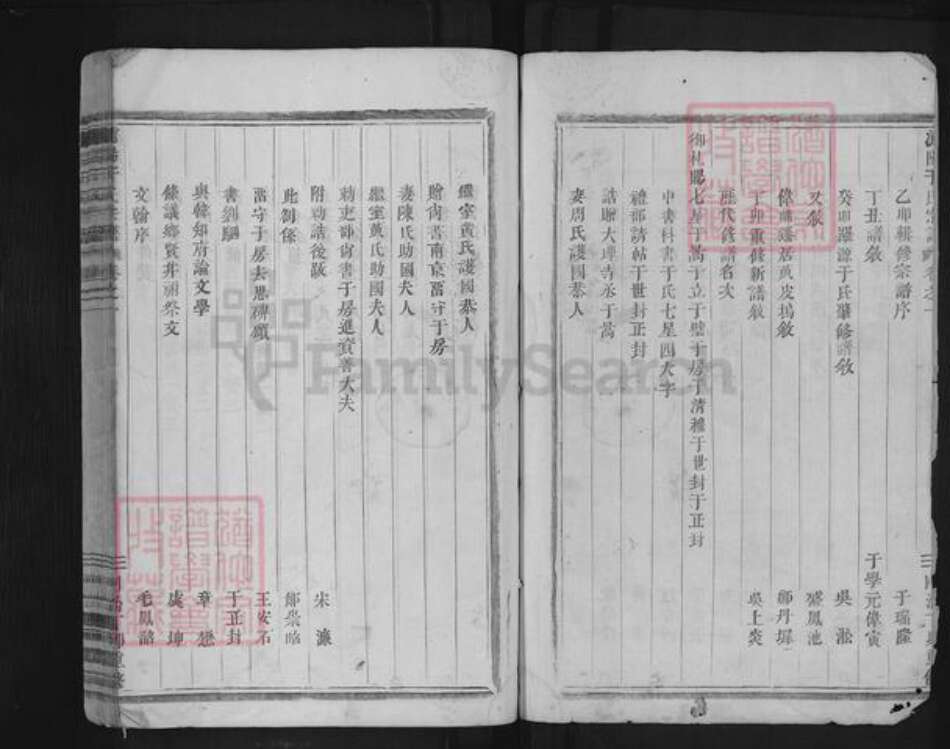 乙卯輯修宗譜序 于瑞隆
丁丑譜敘 于學元偉寅
癸卯羅源于氏肇修譜敘 吳淞
又敘 盛鳳池
偉甫遷居黃皮塢敘 師丹墀
丁卯重修新譜敘 吳上炎
歷代修譜名次
御札賜七星于嵩于立于璧于房于清穆于世封于正封
中書科書于氏七星四大字
禮部請帖于世封正封
誥贈大理寺丞于嵩
妻周氏護國恭人
繼室黃氏護國恭人
贈尚書南京留守于房
妻陳氏助國夫人
繼室黃氏助國夫人
勅吏部尚書于房進資善大夫
附勅誥後跋 宋濂
此劄係
留守于房去思碑頌 王安石
書劉驷 于正封
與韓知府論文學 章懋
錄議鄉賢并祠祭文 虞坤
文翰序 毛鳳韶
FamilySearch